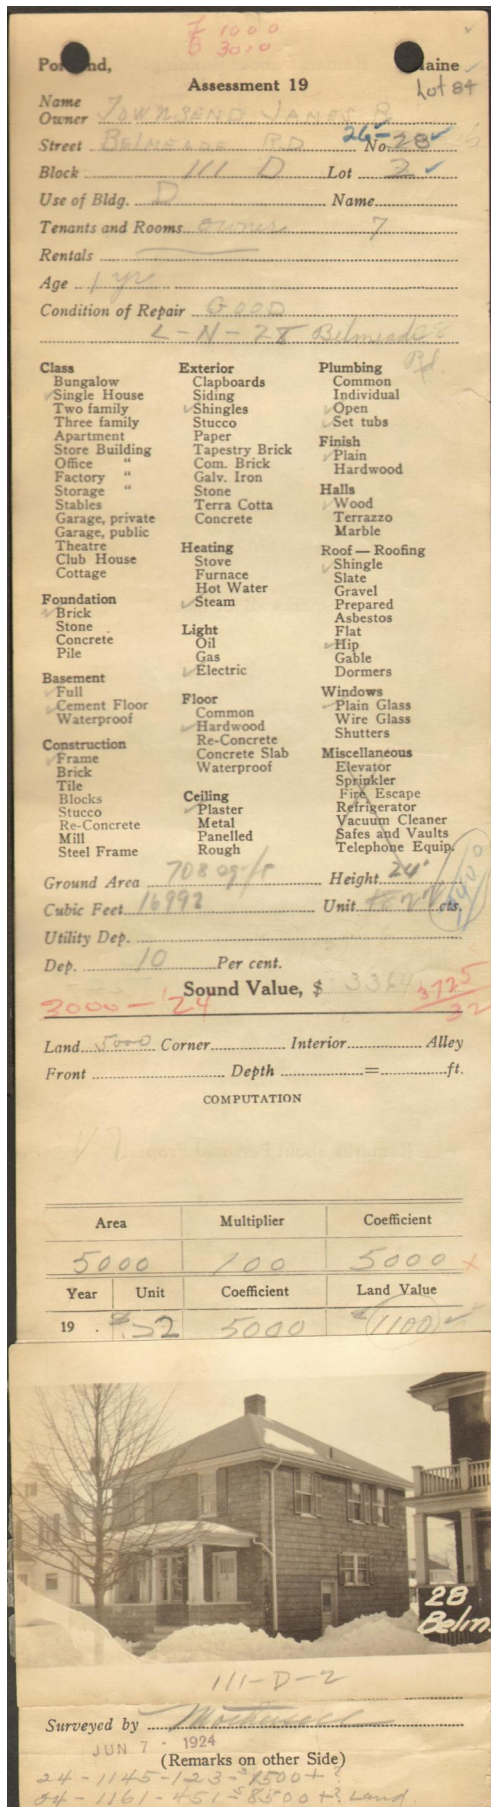 L 1000
B 3000
Portland, Maine
Assessment 19
Lot 84
Name
Owner TOWNSEND JAMES R
Street BELMEADE RD No. 26-28
Block 111 D Lot 2
Use of Bldg. D Name
Tenants and Rooms owner 7
Rentals
Age 1 yr
Condition of Repair GOOD
L-N-28 Belmeade Rd.
Class
Bungalow
Single House
Two family
Three family
Apartment
Store Building
Office "
Factory "
Storage "
Stables
Garage, private
Garage, public
Theatre
Club House
Cottage
Foundation
Brick
Stone
Concrete
Pile
Basement
Full
Cement Floor
Waterproof
Construction
Frame
Brick
Tile
Blocks
Stucco
Re-Concrete
Mill
Steel Frame
Exterior
Clapboards
Siding
Shingles
Stucco
Paper
Tapestry Brick
Com. Brick
Galv. Iron
Stone
Terra Cotta
Concrete
Heating
Stove
Furnace
Hot Water
Steam
Light
Oil
Gas
Electric
Floor
Common
Hardwood
Re-Concrete
Concrete Slab
Waterproof
Ceiling
Plaster
Metal
Panelled
Rough
Plumbing
Common
Individual
Open
Set tubs
Finish
Plain
Hardwood
Halls
Wood
Terrazzo
Marble
Roof — Roofing
Shingle
Slate
Gravel
Prepared
Asbestos
Flat
Hip
Gable
Dormers
Windows
Plain Glass
Wire Glass
Shutters
Miscellaneous
Elevator
Sprinkler
Fire Escape
Refrigerator
Vacuum Cleaner
Safes and Vaults
Telephone Equip.
Ground Area 708 Height 24'
Cubic Feet 16992 Unit 22 cts.
Utility Dep.
Dep. 10 Per cent.
Sound Value, $ 3364 3725
3000 - '24 32
Land 5000 Corner Interior Alley
Front Depth = ft.
COMPUTATION
Area Multiplier Coefficient
5000 100 5000
Year Unit Coefficient Land Value
19 $.22 5000 $1100
28
Belm.
111-D-2
Surveyed by
JUN 7 - 1924
(Remarks on other Side)
24-1145-123-$7500+?
24-1161-451-$8500+? Land